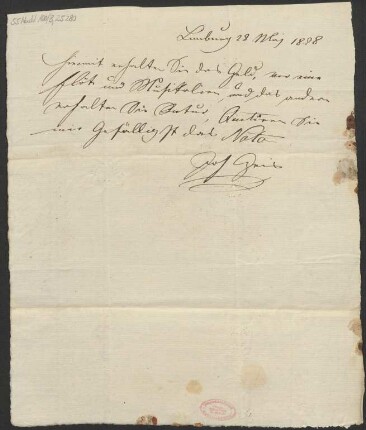 Limburg 28 May 1838
hiermit erhalten Sie das Geld, vor eine
Flöt und Musikalien, und das andere
erhalten Sie Retur, Quetiren Sie
mir Gefälligst das Nota
Jos